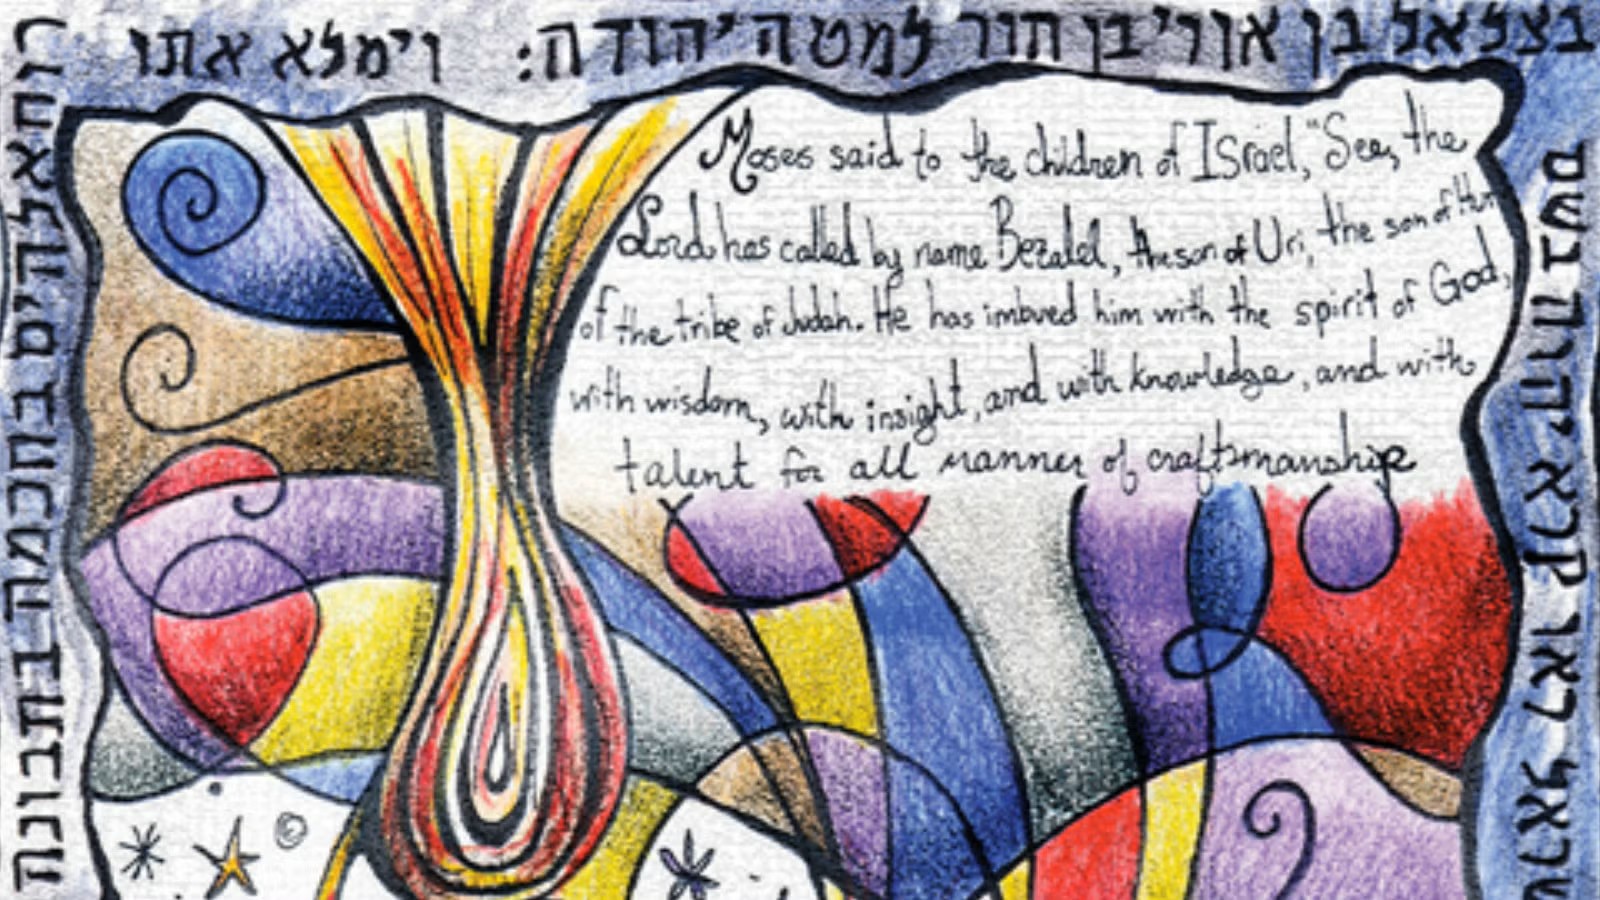 ראו קרא יהוה בשם
בצלאל בן אורי בן חור למטה יהודה: וימלא אתו
רוח אלהים בחכמה בתבונה
Moses said to the children of Israel, "See, the
Lord has called by name Bezalel, the son of Uri, the son of Hur
of the tribe of Judah. He has imbued him with the spirit of God,
with wisdom, with insight, and with knowledge, and with
talent for all manner of craftsmanship